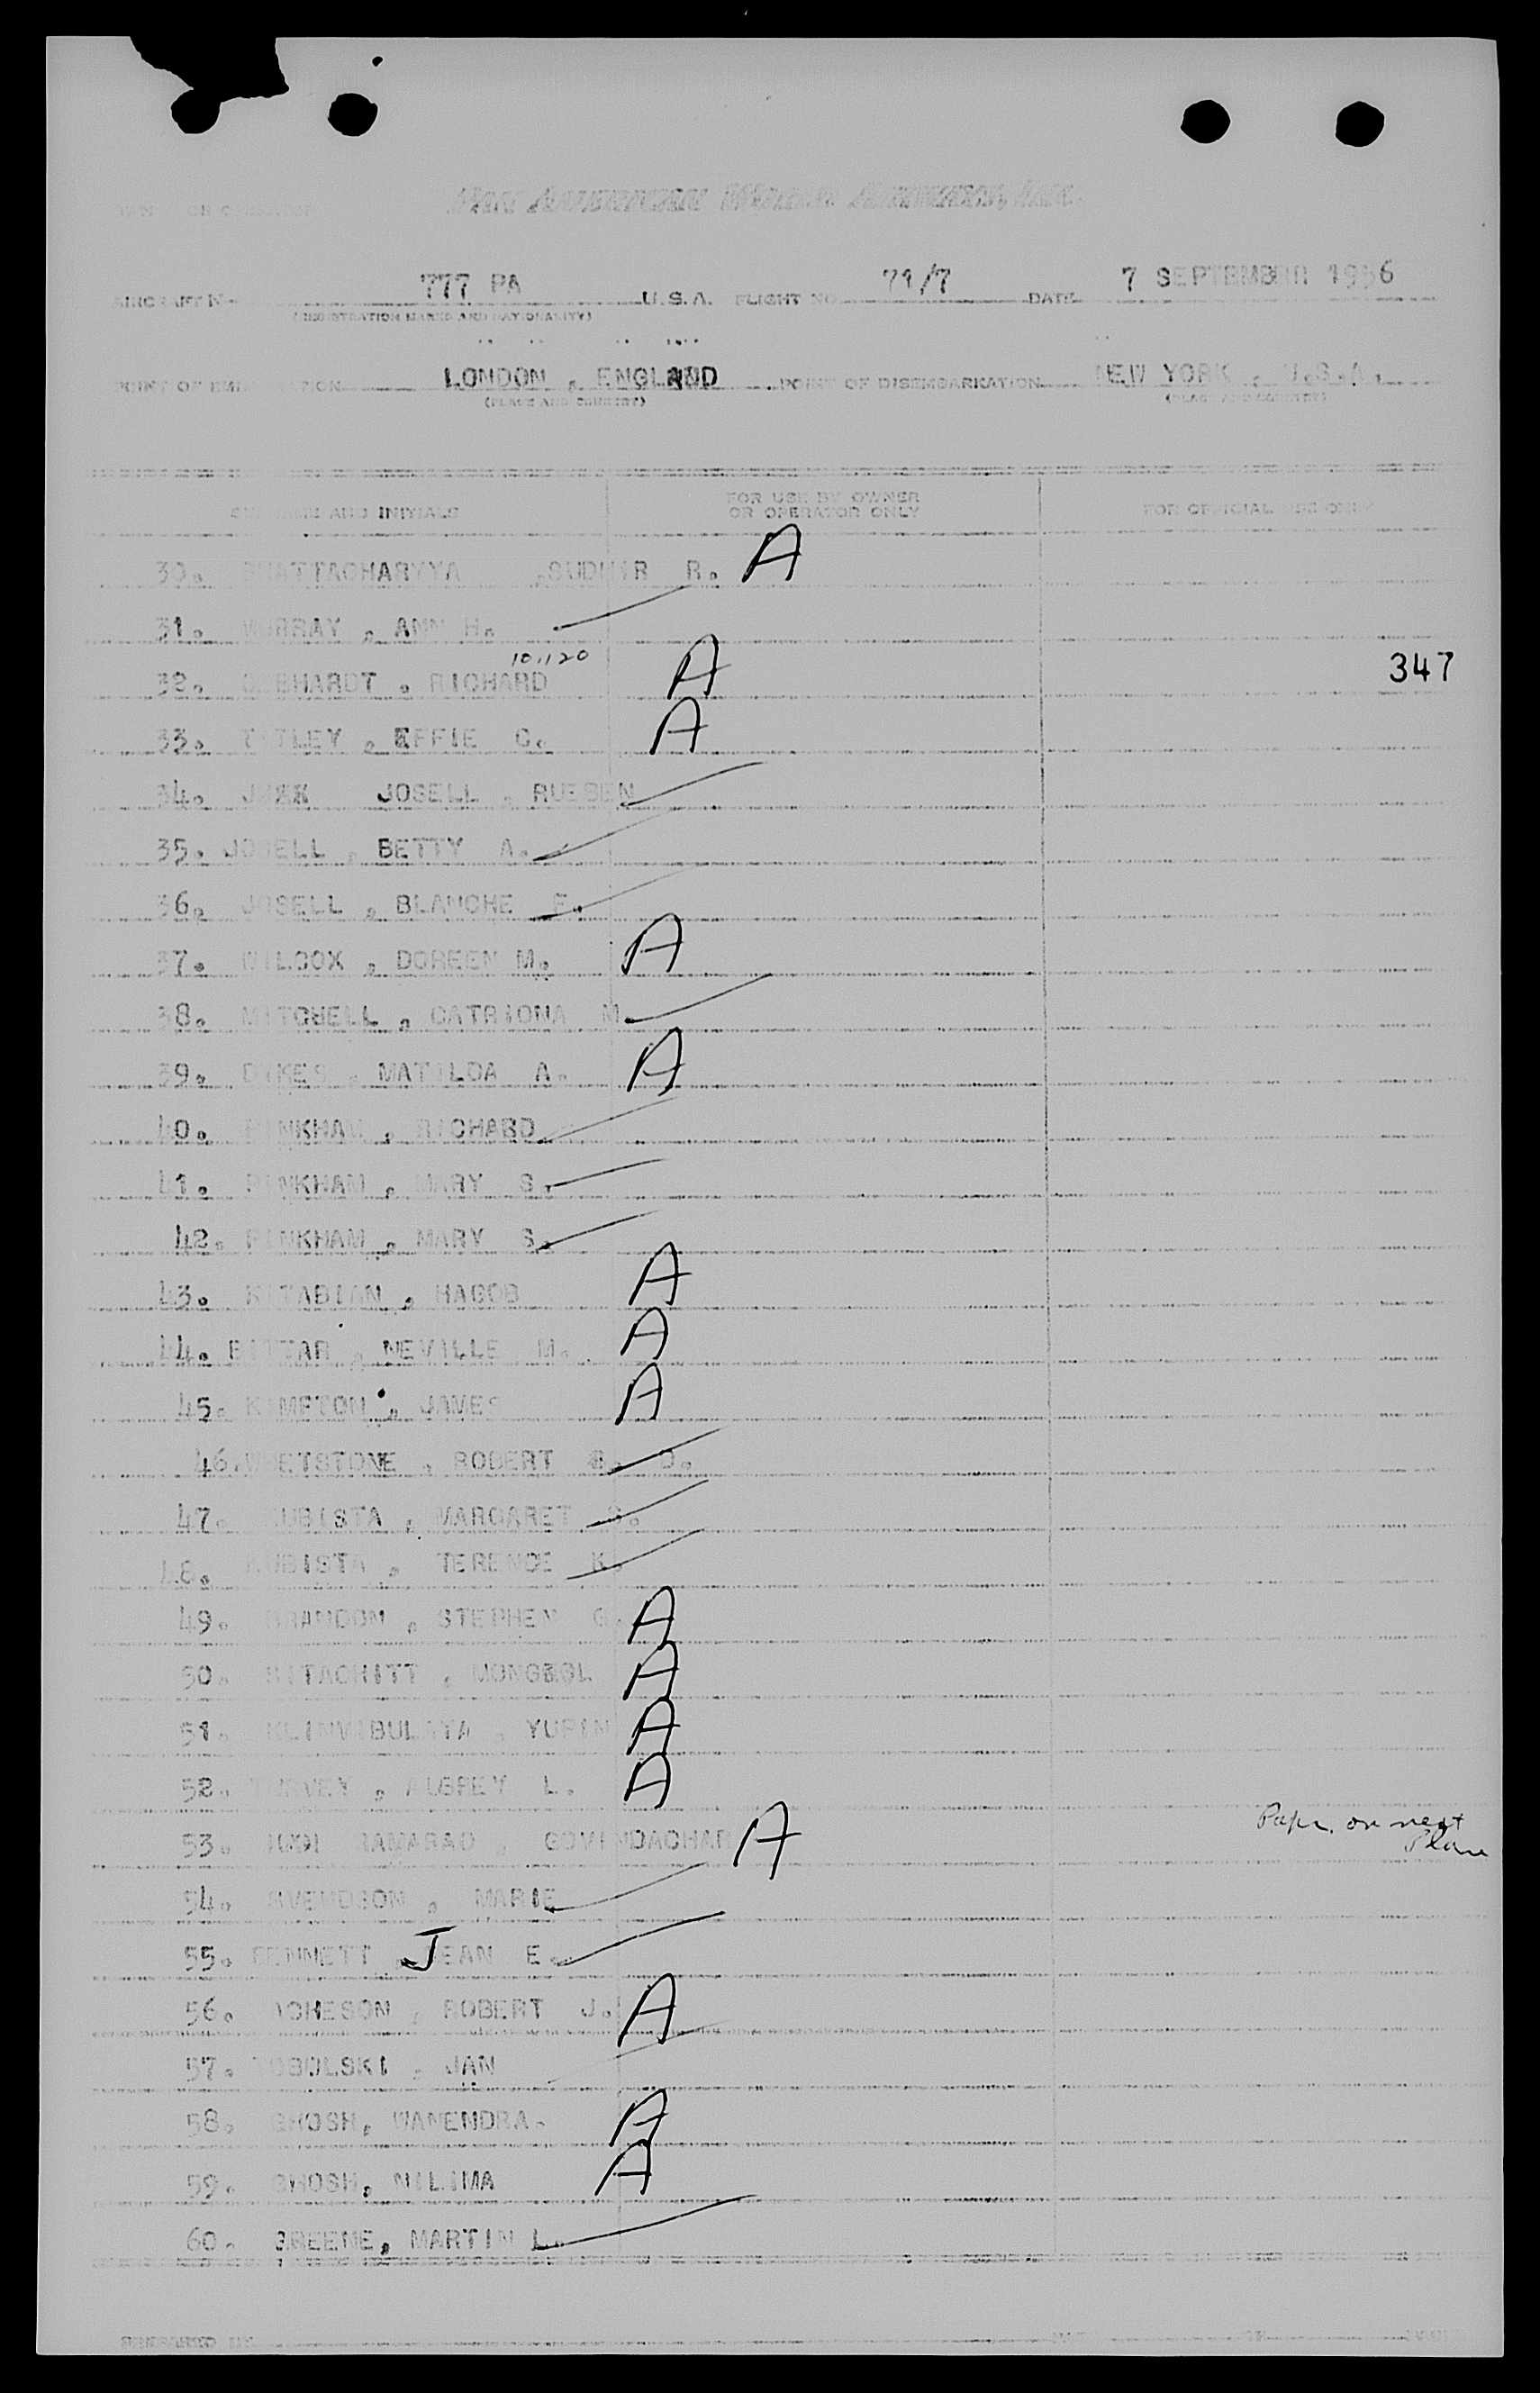 PAN AMERICAN WORLD AIRWAYS, INC.
AIRCRAFT No. 777 PA U.S.A. FLIGHT NO 71/7 DATE 7 SEPTEMBER 1956
(REGISTRATION MARKS AND NATIONALITY)
POINT OF EMBARKATION LONDON , ENGLAND POINT OF DISEMBARKATION NEW YORK , U.S.A.
(PLACE AND COUNTRY) (PLACE AND COUNTRY)
SURNAME AND INITIALS FOR USE BY OWNER OR OPERATOR ONLY FOR OFFICIAL USE ONLY
30. BHATTACHARYYA ,SUDHIR R. A
31. MURRAY , ANN H.
10,120
32. GEBHARDT , RICHARD A 347
33. TETLEY , EFFIE C. A
34. JOSELL , RUEBEN
35. JOSELL , BETTY A.
36. JOSELL , BLANCHE F.
37. WILCOX , DOREEN M. A
38. MITCHELL , CATRIONA M.
39. DYKES , MATILDA A. A
40. PINKHAM , RICHARD
41. PINKHAM , MARY S.
42. PINKHAM , MARY S.
43. KITABIAN , HAGOB A
44. NEVILLE M. A
45. JAMES A
46. WHETSTONE , ROBERT D.
47. KUBISTA , MARGARET
48. KUBISTA , TERENCE K.
49. BRANDON , STEPHEN G. A
50. A
51. YUPIN A
52. L. A
53. RAMARAO , GOVINDACHAR A Papr. on next
Plane
54. MARIE
55. BENNETT , JEAN E.
56. ACHESON , ROBERT J. A
57. TOBOLSKI , JAN
58. GHOSH, MANENDRA. A
59. GHOSH, NILIMA A
60. GREENE, MARTIN L.